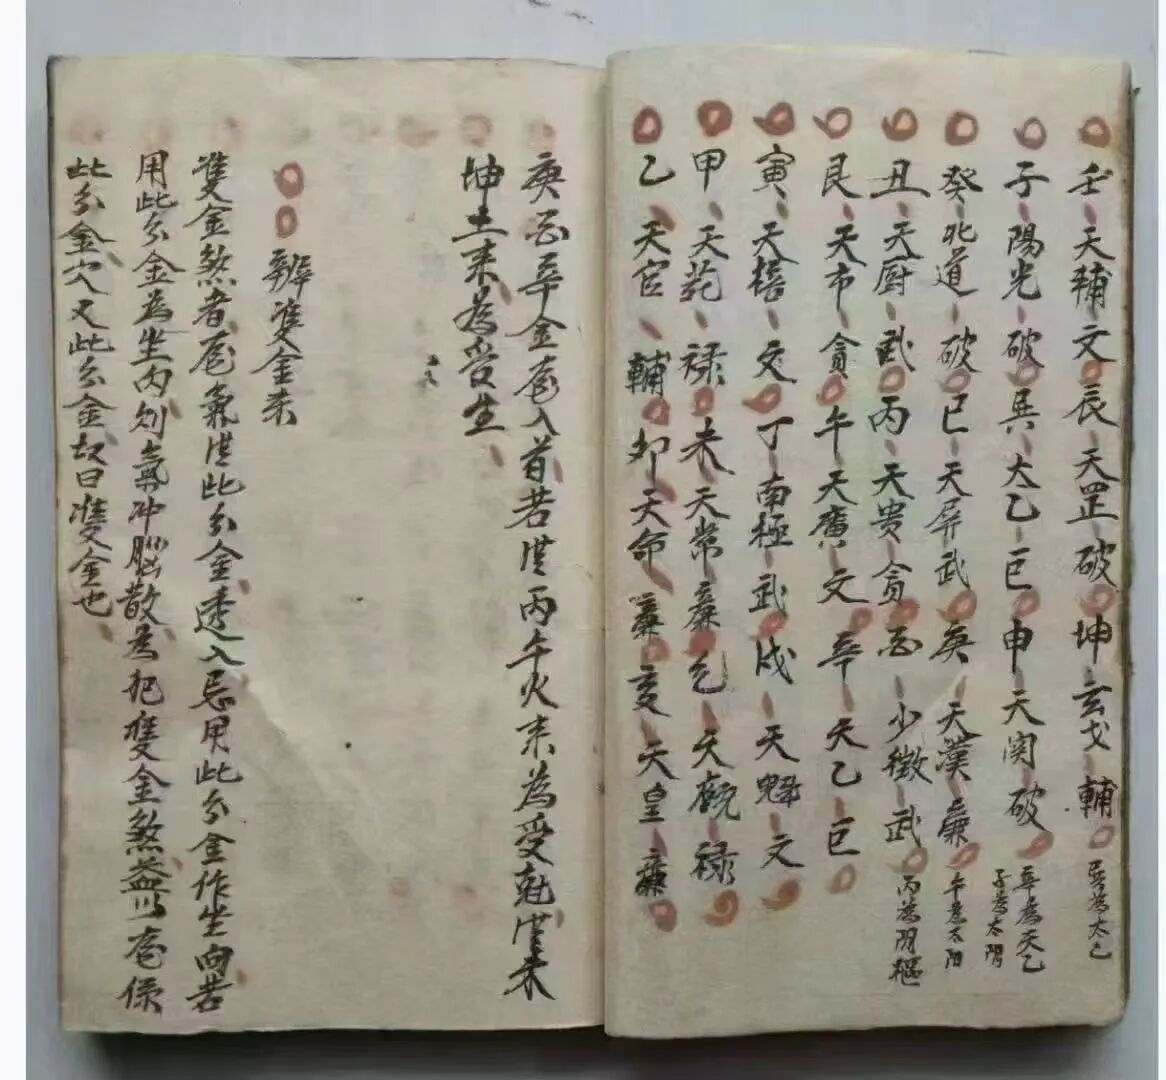 壬天輔文辰天罡破坤玄戈輔
巽為太乙
子陽光破巽太乙巨申天関破
辛為天乙
子為太陰
癸北道破巳天屏武庚天漢廉
午為太阳
丑天厨武丙天贵贪酉少微武
丙為阴樞
艮天市貪午天廣文辛天乙巨
寅天棓文丁南極武戌天魁文
甲天苑禄未天常廉乾天廐禄
乙天官輔卯天命廉亥天皇廉
庚酉辛金龙入首若 丙午火来為受尅 未
坤土来為受生
辨雙金来
雙金煞者龙氣 此分金透入忌用此分金作坐向若
用此分金為坐内 氣冲腦散為犯雙金煞盖以龙係
此分金穴又此分金故曰雙金也